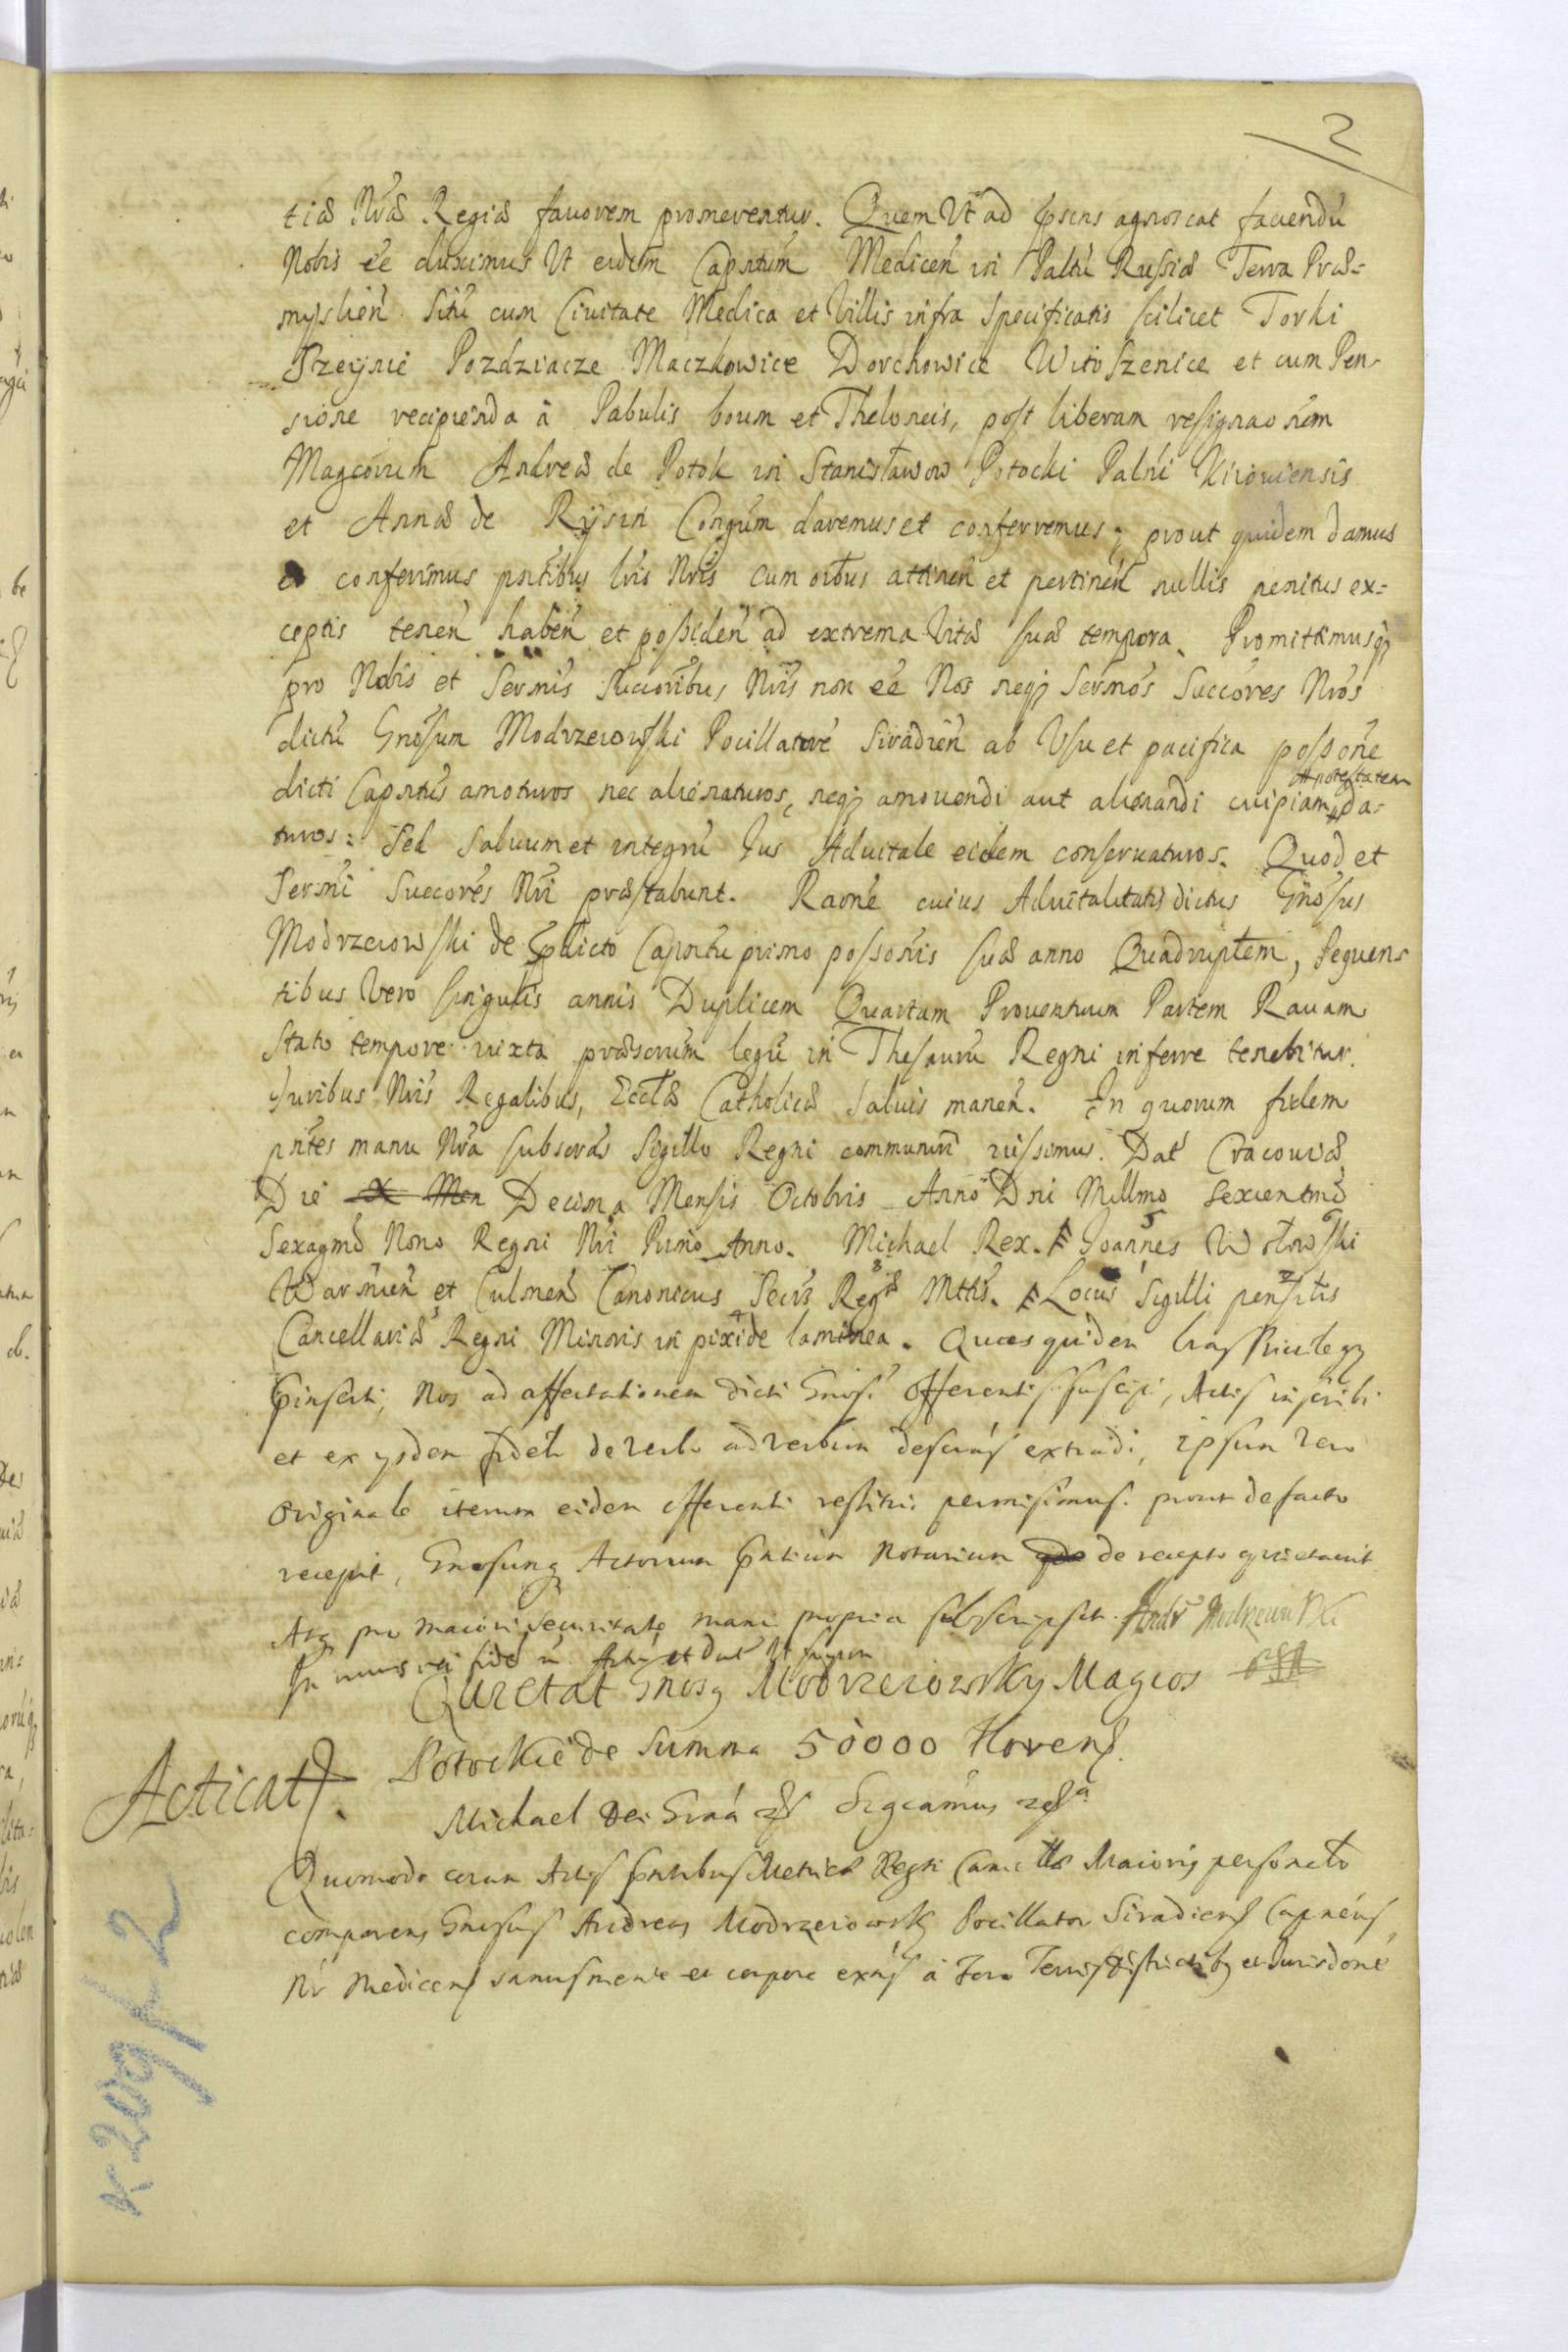 2
tiæ Nræ Regiæ favorem promerentur. Quem Ut ad ipsens agnoscat favendũ
Nobis ẽe duximus Ut eidem Capnẽum Medicen̄ in Paltũ Russiæ Terra Præ-
mÿslien̄ Sitũ cum Civitate Medica et Villis infra Specificatis scilicet Torki
Szeÿnie Pozdziacze Maczkowice Dorchowice WitoSzenice et cum Pen-
sione recipienda â Pabulis boum et Theloneis, post liberam resignaonem
Magcorum Andreæ de Potok in Stanisławow Potocki Palni Kiioviensis
et Annæ de Rÿsin Congum daremus et conferremus; prout quidem damus
et conferimus pntibus lris Nris cum oibus attinen̄ et pertinen̄ nullis penitus ex=
ceptis tenen̄ haben̄ et possiden̄ ad extrema Vitæ suæ tempora. Promittimusq;
pro Nobis et Sermis Succoribus Nris non ẽe Nos neq; Sermos Succores Nros
dictũ Gnosum Modrzewski Pocillatorẽ Siradien̄ ab Usu et pacifica possone
dicti Capntus amoturos nec alienaturos, neq; amovendi aut alienandi cuipiam potestatem da-
turos: Sed Salvum et integrũ Jus Advitale eidem conservaturos. Quod et
Sermi Succores Nri præstabunt. Raone cuius Advitalitatis dictus Gnosus
Modrzewski de pdicto Capntu primo possonis suæ anno Quadruplem, Sequen-
tibus Vero singulis annis Duplicem Quartam Proventuum Partem Ravam
Stato tempore iuxta præscrum legũ in Thesaurũ Regni inferre tenebitur.
Juribus Nris Regalibus, Ecclæ Catholicæ Salvis manen̄. In quorum fidem
pntes manu Nra subscras Sigillo Regni communiri iussimus. Dat Cracoviæ
Die Decima Mensis Octobris Anno Dni Millmo Sexcentmo
Sexagmo Nono Regni Nri Primo Anno. Michael Rex. Joannes Wołowski
Warmien̄ et Culmen̄ Canonicus Secrs Regæ Mttis. Locus Sigilli pensilis
Cancellariæ Regni Minoris in pixide laminea. Quas quidem lras Privilegy
pinserti, Nos ad affectationem dicti Gnosi Offerentis suscipi, Actis inscribi
et ex ysdem fideli de verbo ad verbum descras extradi, ipsum vero
Originale iterum eidem offerenti restitui permisimus. prout de facto
recepit, Gnosumq Actorum pntium Notarium de recepto quietavit
Atq pro maiori securitate manu propria subscripsit. Andr Modrzewski
In cuius rei fidẽ Actũ et Dat Ut supra
Quietat Gnosq Modrzeiowsky Magcos
Potockie de Summa 50000 floren̄
Acticat.
Michael Dei Graâ &c Sigcamus &c
Quomodo coram Actis pntibus Metrices Regni Cancellæ Maioris personalr
comparens Gnosus Andreas Modrzeiowsky Pocillator Siradiens Capneus
Nr Medicens sanus mente et corpore exns â foro Terris districtibq et Jurisdone
K 209/2